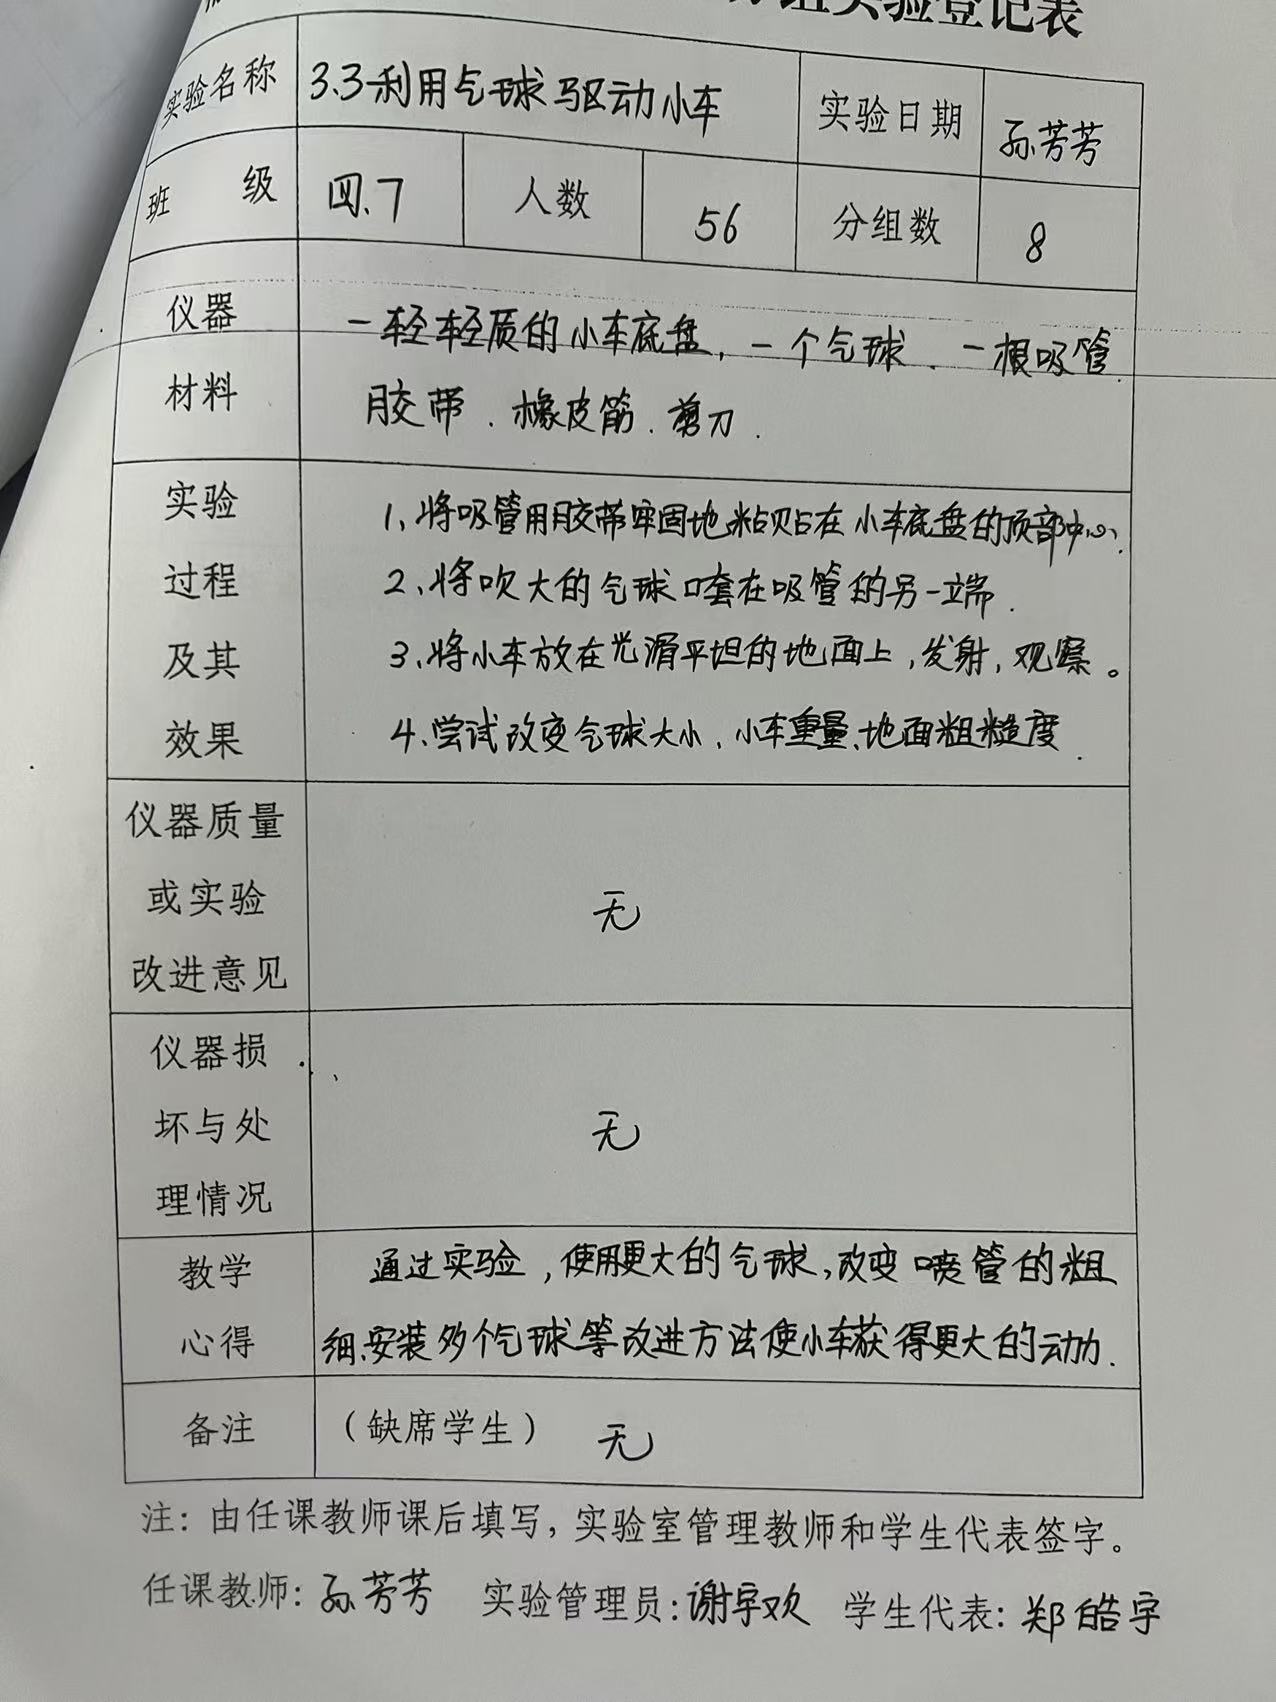 分组实验登记表
实验名称 3.3利用气球驱动小车 实验日期 孙芳芳
班 级 四.7 人数 56 分组数 8
仪器 一轻轻质的小车底盘,一个气球.一根吸管.
材料 胶带.橡皮筋.剪刀.
实验 1、将吸管用胶带牢固地粘贴在小车底盘的顶部中心.
过程 2、将吹大的气球口套在吸管的另一端.
及其 3、将小车放在光滑平坦的地面上,发射,观察。
效果 4、尝试改变气球大小、小车重量、地面粗糙度.
仪器质量
或实验 无
改进意见
仪器损
坏与处 无
理情况
教学 通过实验,使用更大的气球,改变喷管的粗
心得 细、安装多个气球等改进方法使小车获得更大的动力.
备注 (缺席学生) 无
注:由任课教师课后填写,实验室管理教师和学生代表签字。
任课教师:孙芳芳 实验管理员:谢宇欢 学生代表:郑皓宇